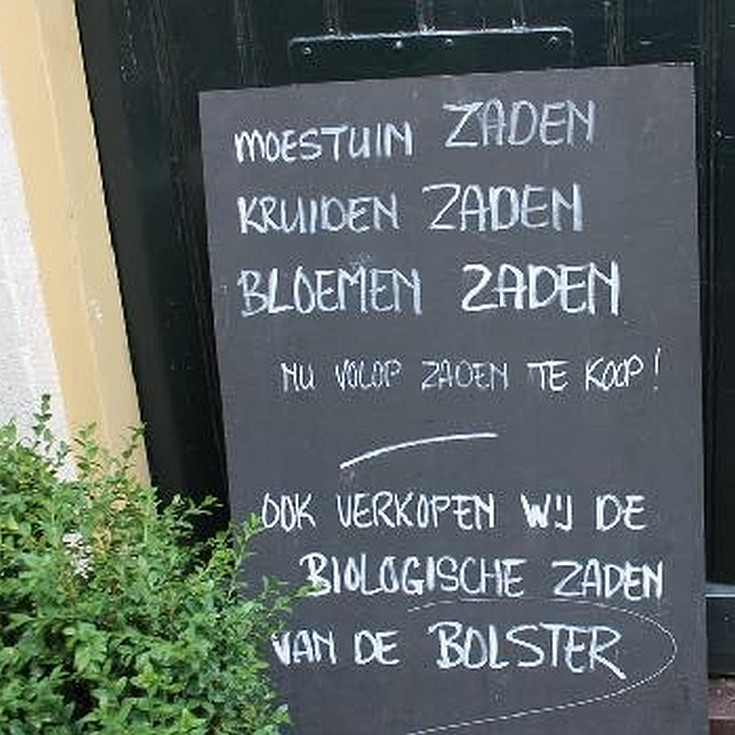 MOESTUIN ZADEN
KRUIDEN ZADEN
BLOEMEN ZADEN
NU VOLOP ZADEN TE KOOP!
OOK VERKOPEN WIJ DE
BIOLOGISCHE ZADEN
VAN DE BOLSTER